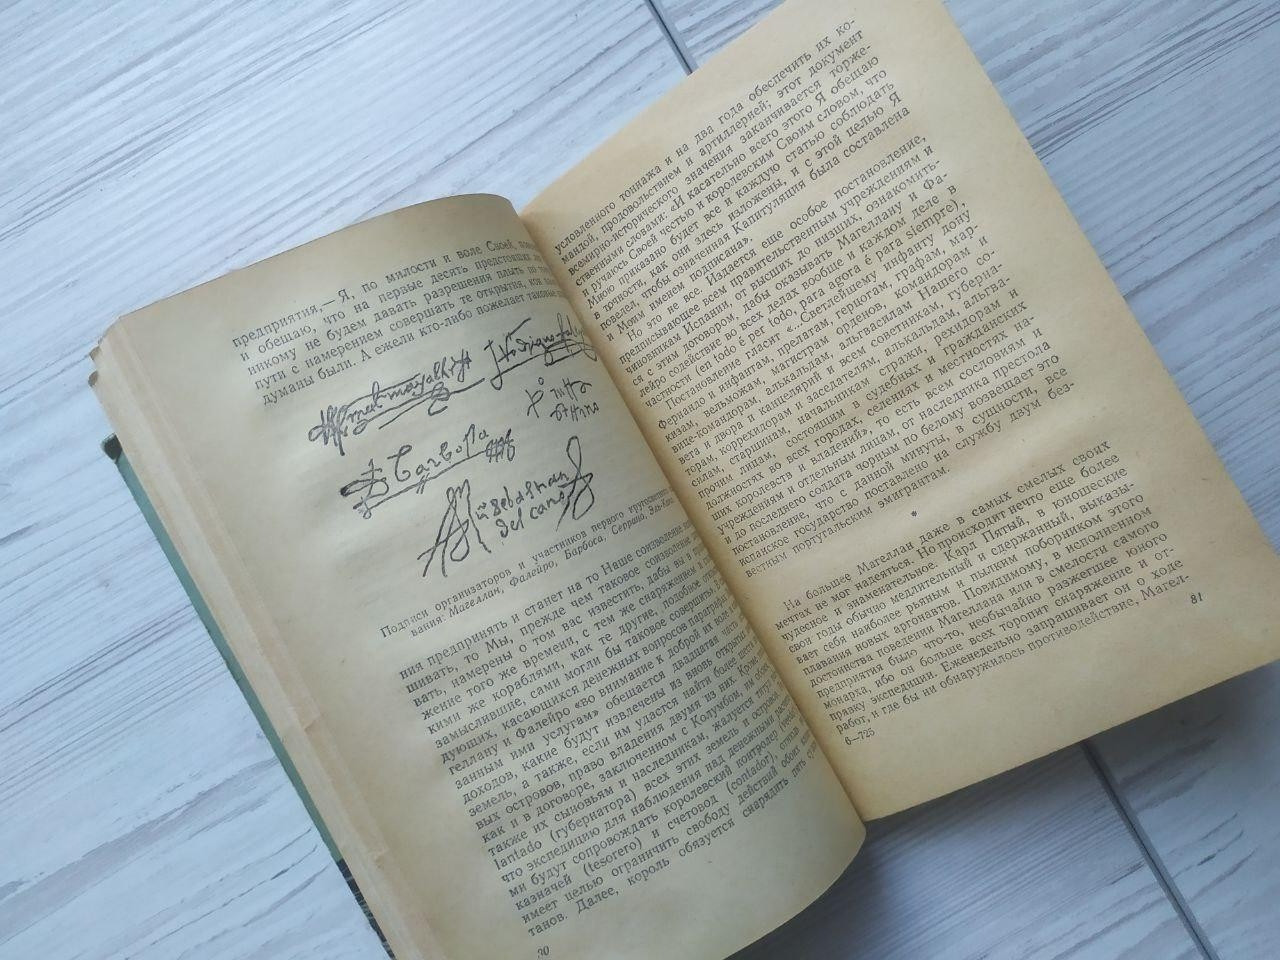 предприятия,— Я, по милости и воле Своей,
и обещаю, что на первые десять предстоящих
никому не будем давать разрешения плыть по
пути с намерением совершать те открытия, кои
думаны были. А ежели кто-либо пожелает таковые
Barbosa
Sebastian
del cano
Подписи организаторов и участников первого кругосветного
вания: Магеллан, Фалейро, Барбоса, Серрано, Эль-Кано
ния предпринять и станет на то Наше соизволение
шивать, то Мы, прежде чем таковое соизволение
вать, намерены о том вас известить, дабы вы в
жение того же времени, с тем же снаряжением и
кими же кораблями, как те другие, подобное
замыслившие, сами могли бы таковое совершить».
дующих, касающихся денежных вопросов параграфах
геллану и Фалейро «во внимание к доброй их воле
занным ими услугам» обещается двадцатая часть
доходов, какие будут извлечены из вновь открытых
земель, а также, если им удастся найти более шести
вых островов, право владения двумя из них. Кроме
как и в договоре, заключенном с Колумбом, им обоим,
также их сыновьям и наследникам, жалуется титул
lantado (губернатора) всех этих земель и островов.
что экспедицию для наблюдения над денежными
ми будут сопровождать королевский контролер
казначей (tesorero) и счетовод (contador), отнюдь
имеет целью ограничить свободу действий обоих
танов. Далее, король обязуется снарядить пять
80
условленного тоннажа и на два года обеспечить их ко-
мандой, продовольствием и артиллерией; этот документ
всемирно-исторического значения заканчивается торже-
ственными словами: «И касательно всего этого Я обещаю
и ручаюсь Своей честью и королевским Своим словом, что
Мною приказано будет все и каждую статью соблюдать
в точности, как они здесь изложены, и с этой целью Я
повелел, чтобы означенная Капитуляция была составлена
и Моим именем подписана».
Но это не все. Издается еще особое постановление,
предписывающее всем правительственным учреждениям и
чиновникам Испании, от высших до низших, ознакомить-
ся с этим договором, дабы оказывать Магеллану и Фа-
лейро содействие во всех делах вообще и каждом деле в
частности (en todo é per todo, para agora é para siempre),
Постановление гласит «...Светлейшему инфанту дону
Фернандо и инфантам, прелатам, герцогам, графам, мар-
кизам, вельможам, магистрам орденов, командорам и
вице-командорам, алькальдам, альгвасилам Нашего со-
вета и двора и канцелярий и всем советникам, губерна-
торам, коррехидорам и заседателям, алькальдам, альгва-
силам, старшинам, начальникам стражи, рехидорам и
прочим лицам, состоящим в судебных и гражданских
должностях во всех городах, селениях и местностях на-
ших королевств и владений», то есть всем сословиям и
учреждениям и отдельным лицам, от наследника престола
и до последнего солдата чорным по белому возвещает это
постановление, что с данной минуты, в сущности, все
испанское государство поставлено на службу двум без-
вестным португальским эмигрантам.
*
На большее Магеллан даже в самых смелых своих
мечтах не мог надеяться. Но происходит нечто еще более
чудесное и знаменательное. Карл Пятый, в юношеские
свои годы обычно медлительный и сдержанный, выказы-
вает себя наиболее рьяным и пылким поборником этого
плавания новых аргонавтов. Повидимому, в исполненном
достоинства поведении Магеллана или в смелости самого
предприятия было что-то, необычайно разжегшее юного
монарха, ибо он больше всех торопит снаряжение и от-
правку экспедиции. Еженедельно запрашивает он о ходе
работ, и где бы ни обнаружилось противодействие, Магел-
6—725
81